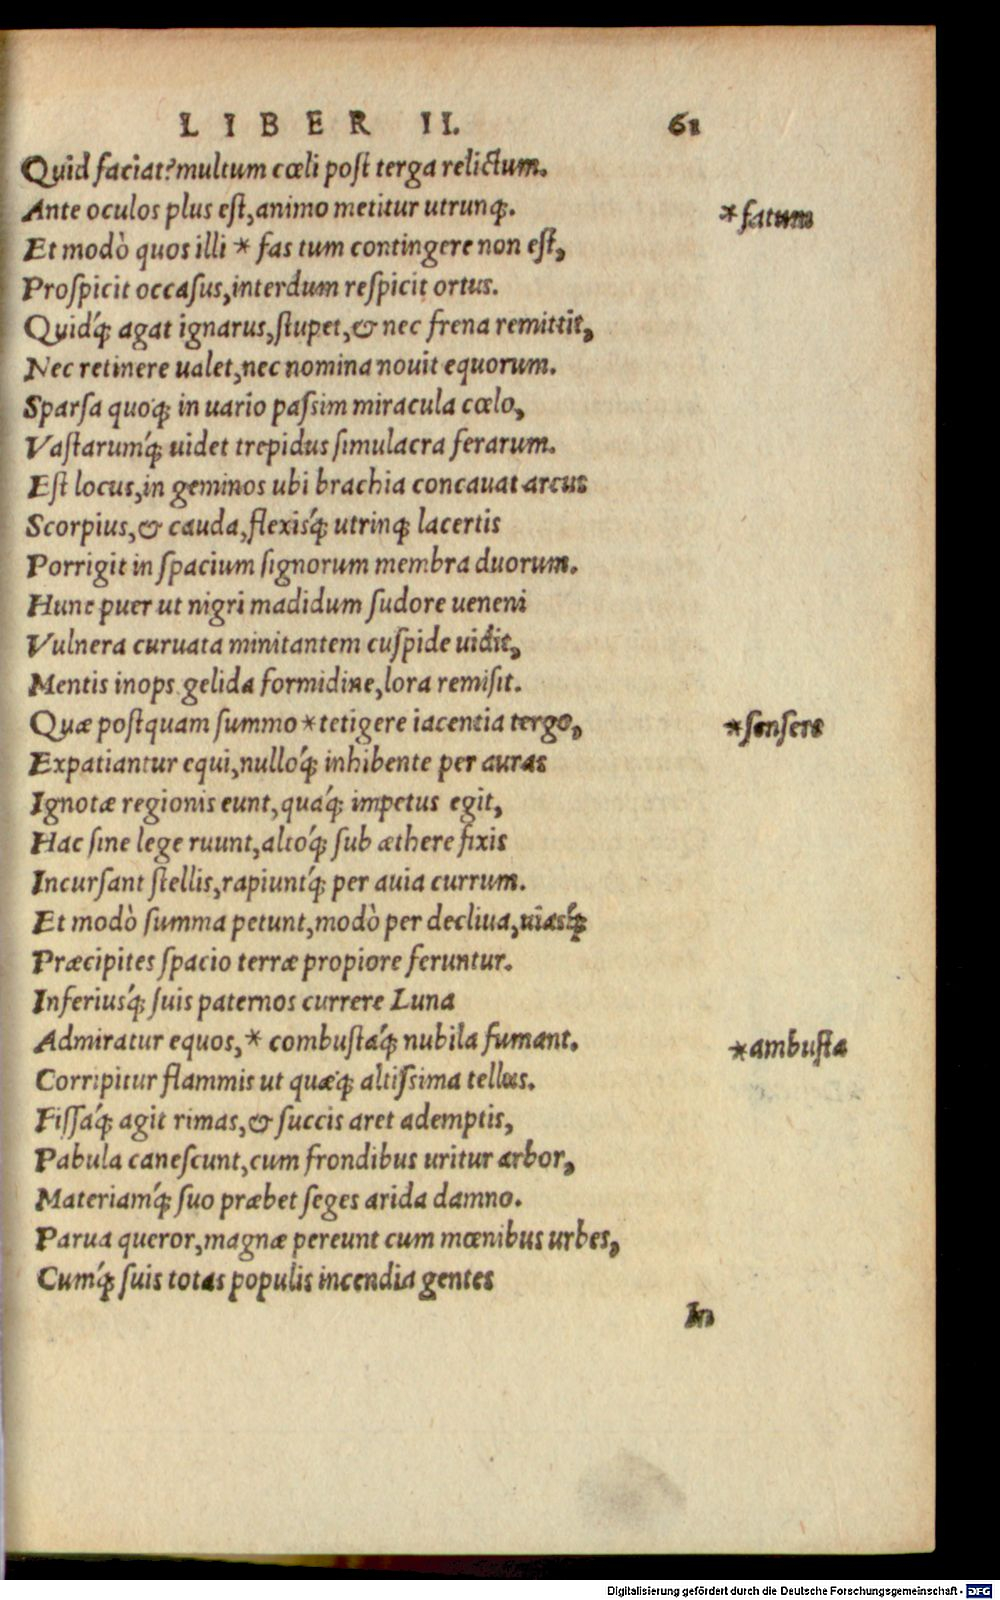 LIBER II. 61
Quid faciat? multum cœli post terga relictum.
Ante oculos plus est, animo metitur utrunq;.
*fatum
Et modò quos illi * fas tum contingere non est,
Prospicit occasus, interdum respicit ortus.
Quidq́; agat ignarus, stupet, & nec frena remittit,
Nec retinere ualet, nec nomina nouit equorum.
Sparsa quoq; in uario passim miracula cœlo,
Vastarumq́; uidet trepidus simulacra ferarum.
Est locus, in geminos ubi brachia concauat arcus
Scorpius, & cauda, flexisq́; utrinq; lacertis
Porrigit in spacium signorum membra duorum.
Hunc puer ut nigri madidum sudore ueneni
Vulnera curuata minitantem cuspide uidit,
Mentis inops gelida formidine, lora remisit.
Quæ postquam summo * tetigere iacentia tergo,
*sensere
Expatiantur equi, nulloq́; inhibente per auras
Ignotæ regionis eunt, quaq́; impetus egit,
Hac sine lege ruunt, altoq́; sub æthere fixis
Incursant stellis, rapiuntq́; per auia currum.
Et modò summa petunt, modò per decliua, uiasq́;
Præcipites spacio terræ propiore feruntur.
Inferiusq́; suis paternos currere Luna
Admiratur equos, * combustaq́; nubila fumant.
*ambusta
Corripitur flammis ut quæq; altissima tellus.
Fissaq́; agit rimas, & succis aret ademptis,
Pabula canescunt, cum frondibus uritur arbor,
Materiamq́; suo præbet seges arida damno.
Parua queror, magnæ pereunt cum mœnibus urbes,
Cumq́; suis totas populis incendia gentes
In
Digitalisierung gefördert durch die Deutsche Forschungsgemeinschaft - DFG